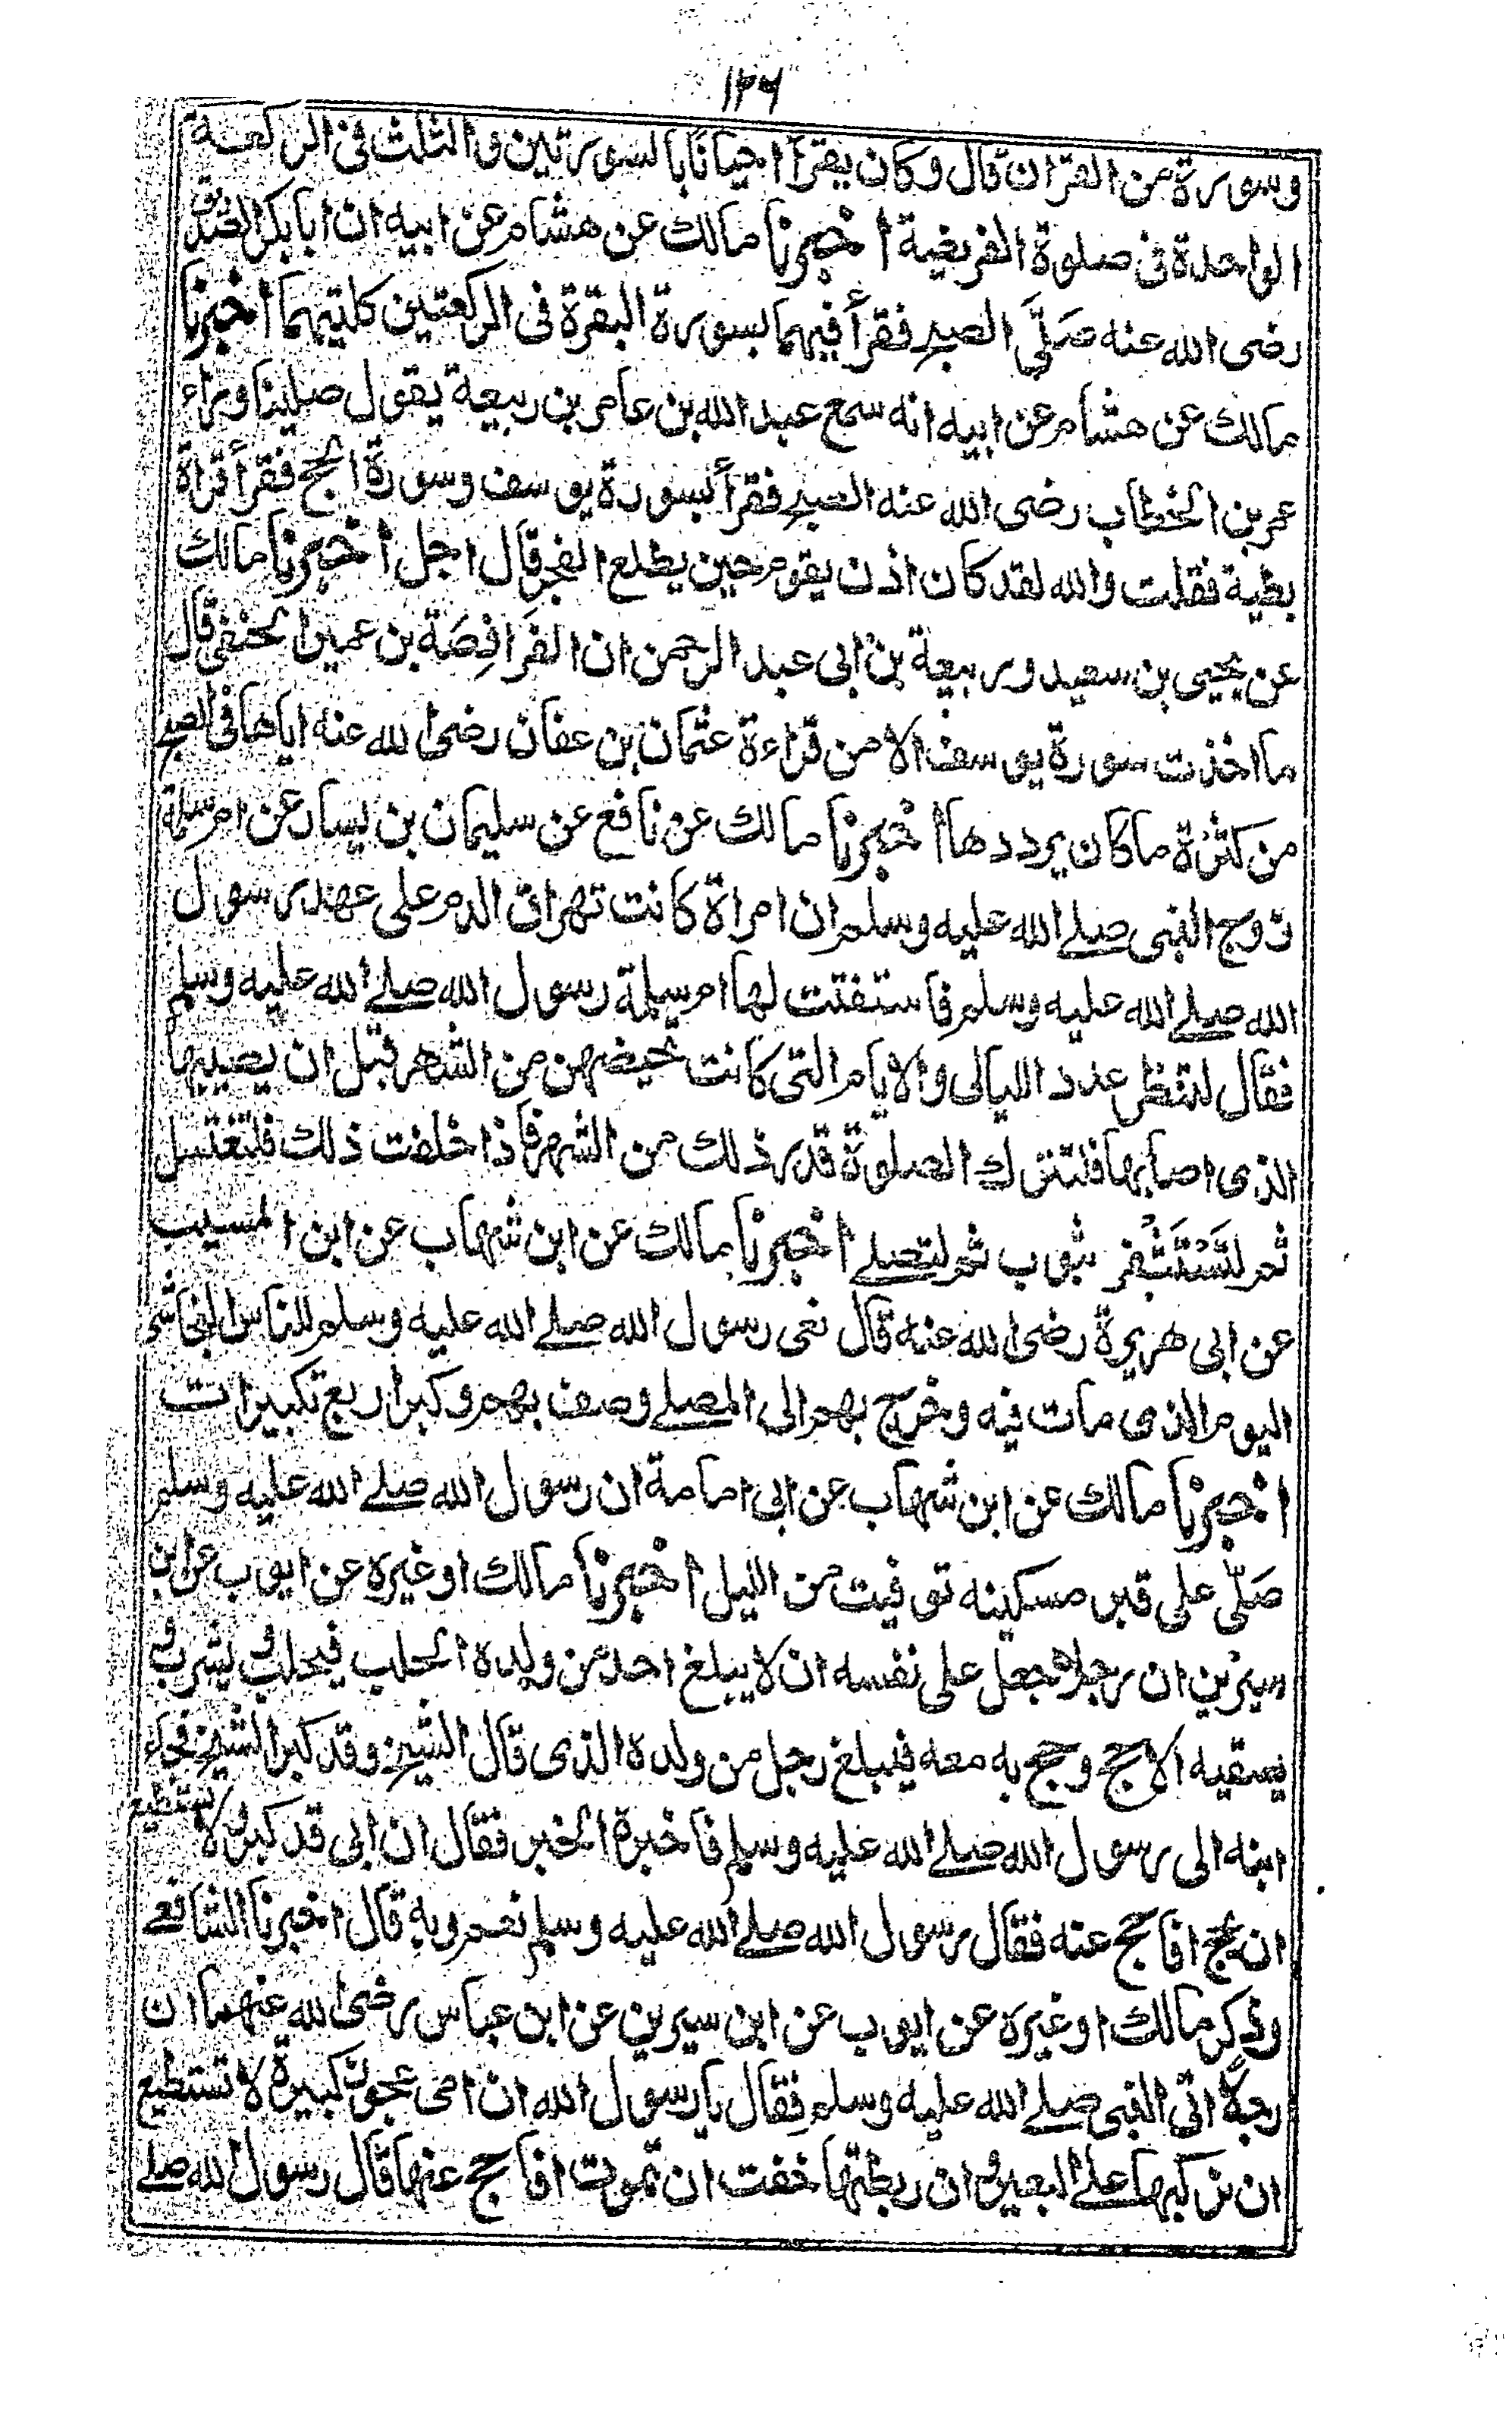 ١٢٦
وسورة من القرآن قال وكان يقرأ احيانا بالسورتين والثلث فى الركعة
الواحدة فى صلوة الفريضة اخبرنا مالك عن هشام عن ابيه ان ابا بكر الصديق
رضى الله عنه صَلَّى الصبح فقرأ فيهما بسورة البقرة فى الركعتين كلتيهما اخبرنا
مالك عن هشام عن ابيه انه سمع عبد الله بن عامر بن ربيعة يقول صلينا وراء
عمر بن الخطاب رضى الله عنه الصبح فقرأ بسورة يوسف وسورة الحج فقرأ قراة
بطية فقلت والله لقد كان اذن يقوم حين يطلع الفجر قال اجل اخبرنا مالك
عن يحيى بن سعيد وربيعة بن ابى عبد الرحمن ان الفَرَافِصَة بن عمير الحنفى قال
ما اخذت سورة يوسف الا من قراءة عثمان بن عفان رضى الله عنه اياها فى الصبح
من كثرة ما كان يرددها اخبرنا مالك عن نافع عن سليمان بن يسار عن ام سلمة
زوج النبى صلے الله عليه وسلم ان امراة كانت تهراق الدم على عهد رسول
الله صلے الله عليه وسلم فاستفتت لها ام سلمة رسول الله صلے الله عليه وسلم
فقال لتنظر عدد الليالى والايام التى كانت تحيضهن من الشهر قبل ان يصيبها
الذى اصابها فلتترك الصلوة قدر ذلك من الشهر فاذا خلفت ذلك فلتغتسل
ثم لتَسْتَثْفِر بثوب ثم لتصلے اخبرنا مالك عن ابن شهاب عن ابن المسيب
عن ابى هريرة رضى الله عنه قال نعى رسول الله صلے الله عليه وسلم للناس النجاشى
اليوم الذى مات فيه وخرج بهم الى المصلے وصف بهم وكبر اربع تكبيرات
اخبرنا مالك عن ابن شهاب عن ابى امامة ان رسول الله صلے الله عليه وسلم
صَلّى على قبر مسكينه توفيت من الليل اخبرنا مالك او غيره عن ايوب عن ابن
سيرين ان رجلا جعل على نفسه ان لا يبلغ احد من ولده الحلب فيحلب ويشرب و
يسقيه الا حج وحج به معه فبلغ رجل من ولده الذى قال الشيخ وقد كبر الشيخ فجاء
ابنه الى رسول الله صلے الله عليه وسلم فاخبره الخبر فقال ان ابى قد كبر ولا يستطيع
ان يحج افاحج عنه فقال رسول الله صلے الله عليه وسلم نعم وبه قال اخبرنا الشافعے
وذكر مالك او غيره عن ايوب عن ابن سيرين عن ابن عباس رضى الله عنهما ان
رجلاً اتى النبى صلے الله عليه وسلم فقال يا رسول الله ان امى عجوز كبيرة لا تستطيع
ان نركبها على البعير وان ربطتها خفت ان تموت افاحج عنها قال رسول الله صلے